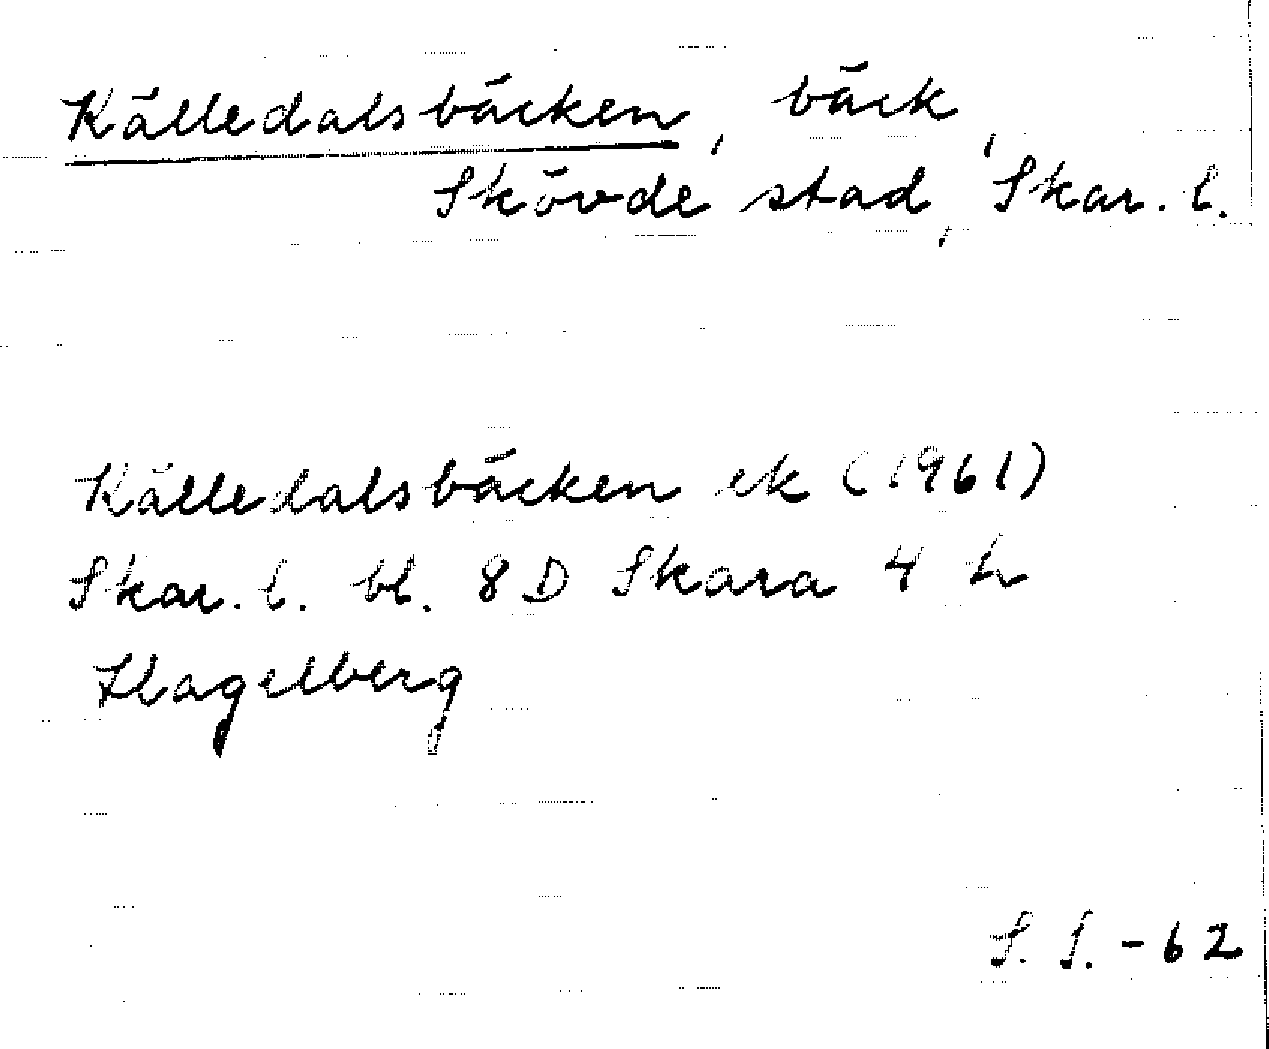 Källedalsbäcken, bäck,
Skövde stad, Skar. l.
Källedalsbäcken ek (1961)
Skar. l. bl. 8 D Skara 4 h
Hagelberg
S. S. - 62